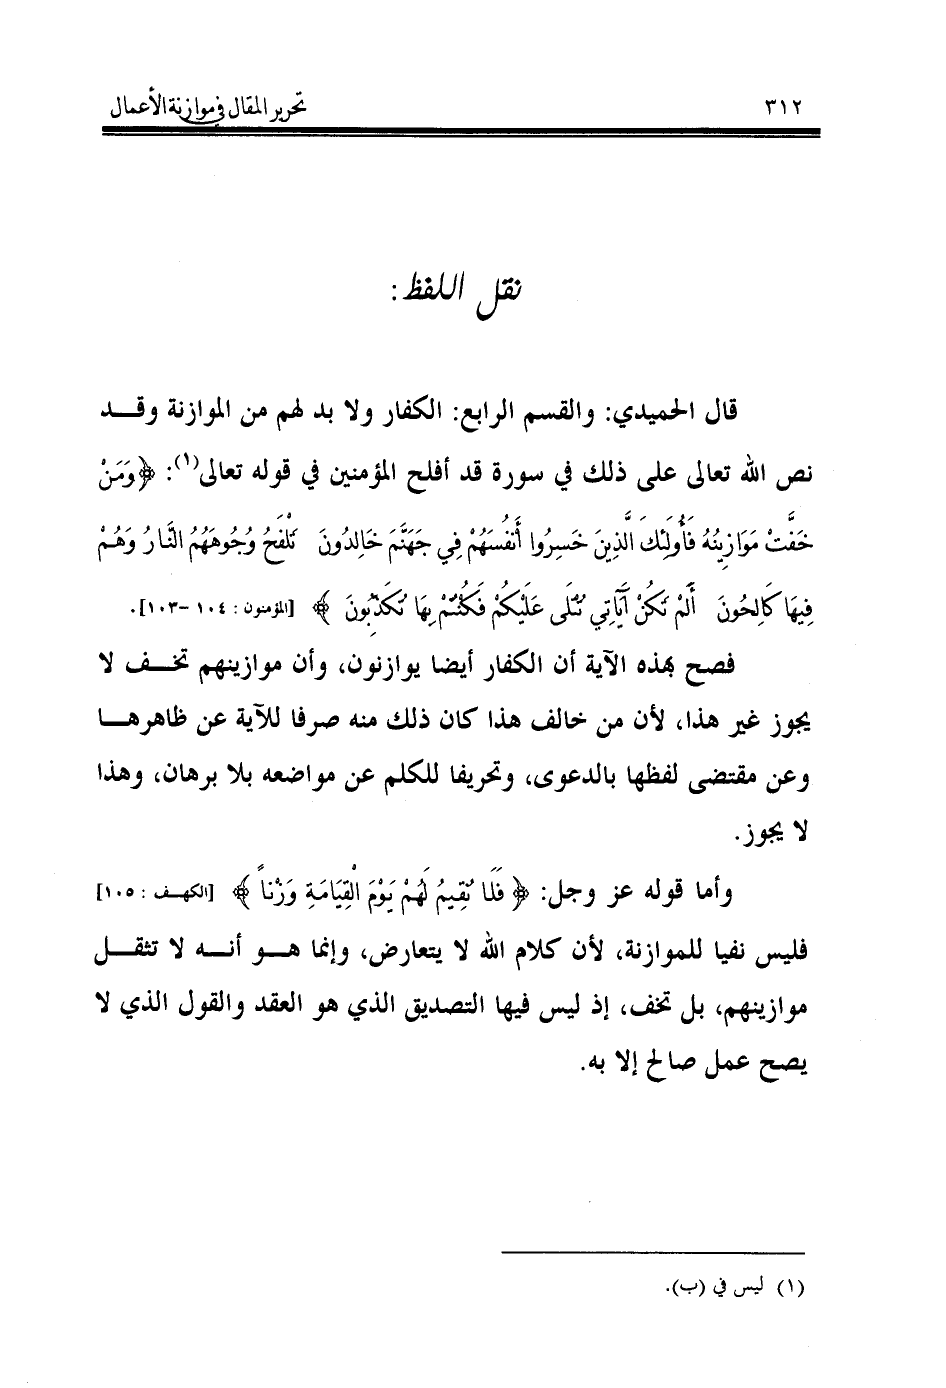 ٣١٢ تحرير المقال في موازنة الأعمال
نقل اللفظ:
قال الحميدي: والقسم الرابع: الكفار ولا بد لهم من الموازنة وقـــد
نص الله تعالى على ذلك في سورة قد أفلح المؤمنين في قوله تعالى(١): ﴿وَمَنْ
خَفَّتْ مَوَازِينُهُ فَأُولَئِكَ الَّذِينَ خَسِرُوا أَنفُسَهُمْ فِي جَهَنَّمَ خَالِدُونَ تَلْفَحُ وُجُوهَهُمُ النَّارُ وَهُمْ
فِيهَا كَالِحُونَ أَلَمْ تَكُنْ آيَاتِي تُتْلَى عَلَيْكُمْ فَكُنْتُمْ بِهَا تُكَذِّبُونَ ﴾ [المؤمنون: ١٠٤ -١٠٣].
فصح بهذه الآية أن الكفار أيضا يوازنون، وأن موازينهم تخـــف لا
يجوز غير هذا، لأن من خالف هذا كان ذلك منه صرفا للآية عن ظاهرهـــا
وعن مقتضى لفظها بالدعوى، وتحريفا للكلم عن مواضعه بلا برهان، وهذا
لا يجوز.
وأما قوله عز وجل: ﴿ فَلَا نُقِيمُ لَهُمْ يَوْمَ الْقِيَامَةِ وَزْناً ﴾ [الكهـف: ١٠٥]
فليس نفيا للموازنة، لأن كلام الله لا يتعارض، وإنما هـــو أنـــه لا تثقـــل
موازينهم، بل تخف، إذ ليس فيها التصديق الذي هو العقد والقول الذي لا
يصح عمل صالح إلا به.
(١) ليس في (ب).